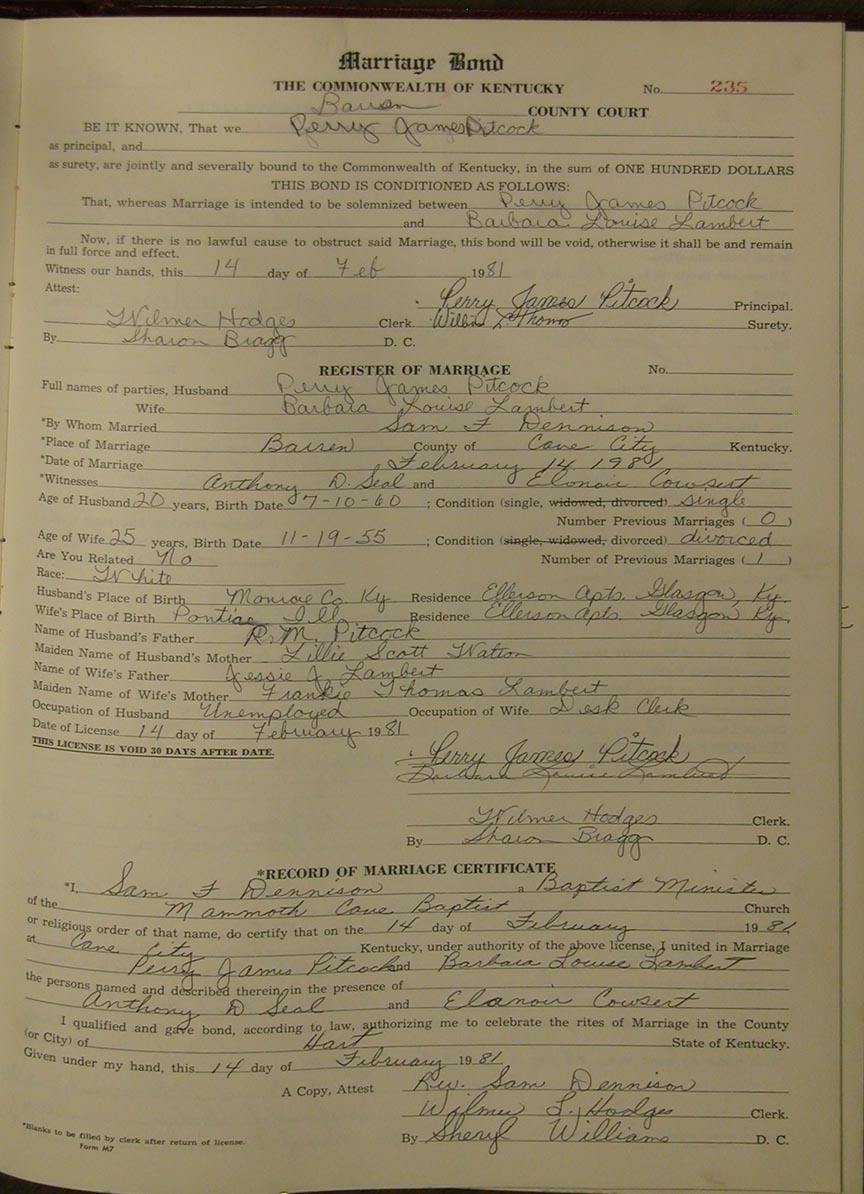 Marriage Bond
THE COMMONWEALTH OF KENTUCKY No. 235
Barren COUNTY COURT
BE IT KNOWN, That we Perry James Pitcock
as principal, and
as surety, are jointly and severally bound to the Commonwealth of Kentucky, in the sum of ONE HUNDRED DOLLARS
THIS BOND IS CONDITIONED AS FOLLOWS:
That, whereas Marriage is intended to be solemnized between Perry James Pitcock
and Barbara Louise Lambert
Now, if there is no lawful cause to obstruct said Marriage, this bond will be void, otherwise it shall be and remain
in full force and effect.
Witness our hands, this 14 day of Feb 1981
Attest:
Perry James Pitcock Principal.
Wilmer Hodges Clerk. Surety.
By Sharon Bragg D. C.
REGISTER OF MARRIAGE No.
Full names of parties, Husband Perry James Pitcock
Wife Barbara Louise Lambert
*By Whom Married Sam F Dennison
*Place of Marriage Barren County of Cave City Kentucky.
*Date of Marriage February 14 1981
*Witnesses Anthony D. Seal and Elonoir Cowsert
Age of Husband 20 years, Birth Date 7-10-60 ; Condition (single, widowed, divorced) single
Number Previous Marriages ( 0 )
Age of Wife 25 years, Birth Date 11-19-55 ; Condition (single, widowed, divorced) divorced
Are You Related No Number of Previous Marriages ( 1 )
Race: White
Husband's Place of Birth Monroe Co Ky Residence Ellerson Apts. Glasgow, Ky.
Wife's Place of Birth Pontiac Ill Residence Ellerson Apts. Glasgow Ky.
Name of Husband's Father R. M. Pitcock
Maiden Name of Husband's Mother Lillie Scott Watson
Name of Wife's Father Jessie J. Lambert
Maiden Name of Wife's Mother Frankie Thomas Lambert
Occupation of Husband Unemployed Occupation of Wife Desk Clerk
Date of License 14 day of February 1981
THIS LICENSE IS VOID 30 DAYS AFTER DATE.
Perry James Pitcock
Barbara Louise Lambert
Wilmer Hodges Clerk.
By Sharon Bragg D. C.
*RECORD OF MARRIAGE CERTIFICATE
*I, Sam F Dennison a Baptist Minister
of the Mammoth Cave Baptist Church
or religious order of that name, do certify that on the 14 day of February 1981
at Cave City Kentucky, under authority of the above license, I united in Marriage
Perry James Pitcock and Barbara Louise Lambert
the persons named and described therein in the presence of
Anthony D Seal and Elanoir Cowsert
I qualified and gave bond, according to law, authorizing me to celebrate the rites of Marriage in the County
(or City) of Hart State of Kentucky.
Given under my hand, this 14 day of February 1981
A Copy, Attest Rev. Sam Dennison
Wilmer L. Hodges Clerk.
By Sheryl Williams D. C.
*Blanks to be filled by clerk after return of license.
Form M7